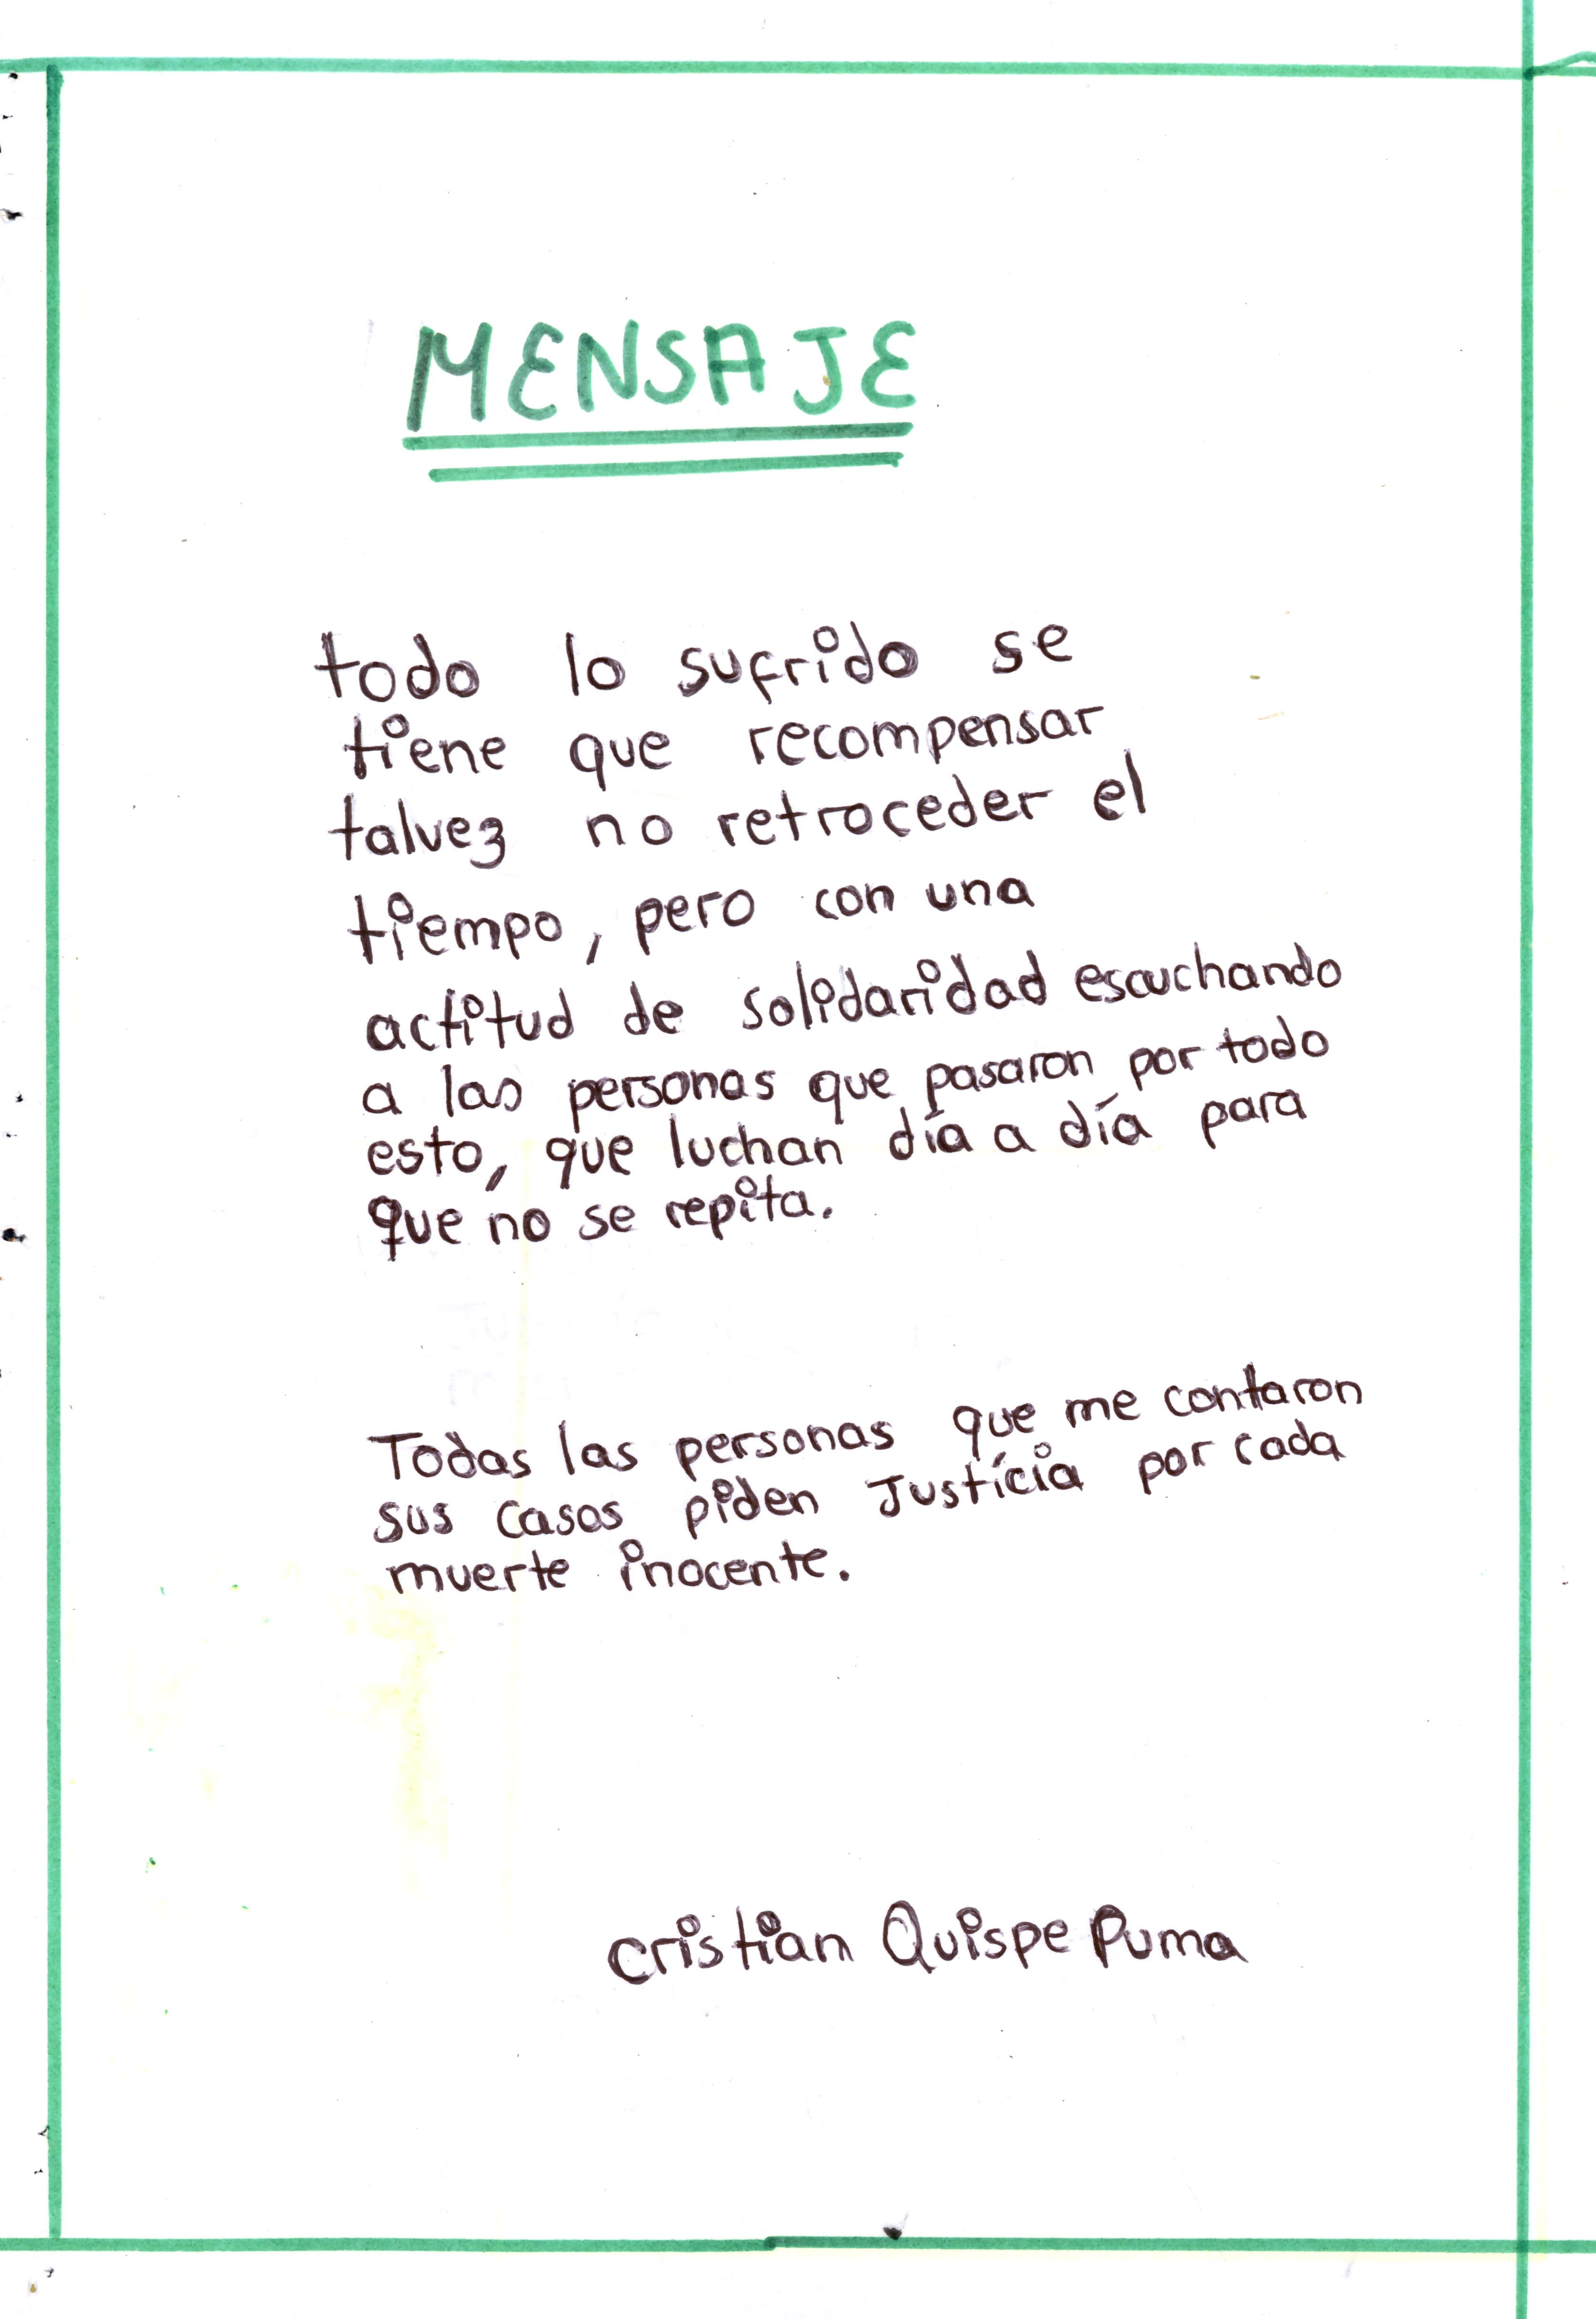 MENSAJE
todo lo sufrido se
tiene que recompensar
talvez no retroceder el
tiempo, pero con una
actitud de solidaridad escuchando
a las personas que pasaron por todo
esto, que luchan día a día para
que no se repita.
Todas las personas que me contaron
sus casos piden Justícia por cada
muerte inocente.
cristian Quispe Puma